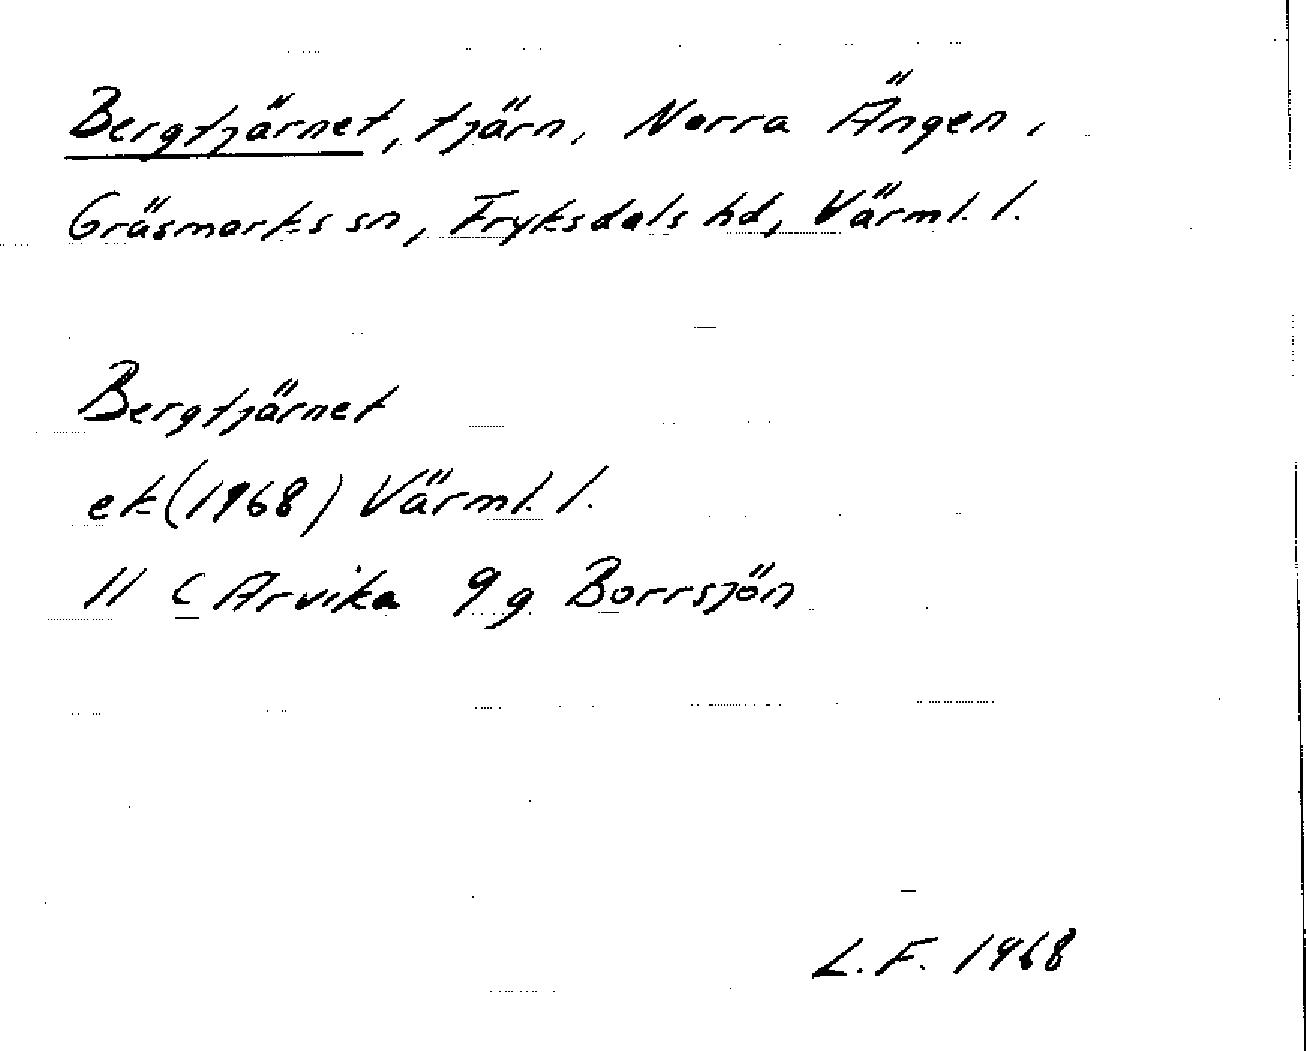 Bergtjärnet, tjärn, Norra Ängen,
Gräsmarks sn, Fryksdals hd, Värml. l.
Bergtjärnet
ek (1968) Värml. l.
11 C Arvika 9 g Borrsjön
L. F. 1968